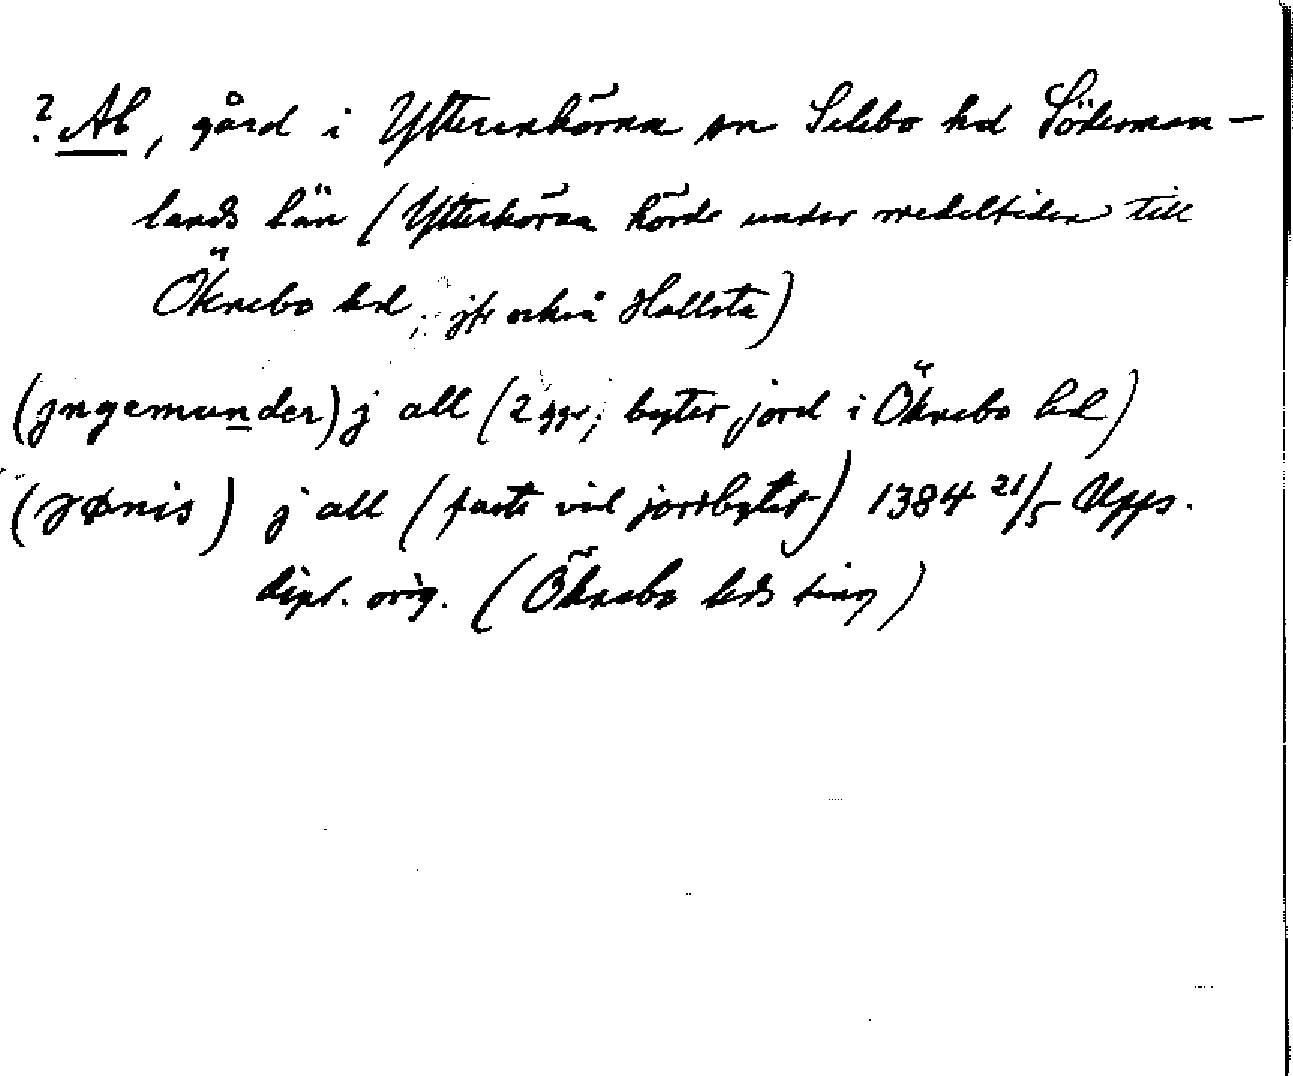 ? Al, gård i Ytterenhörna sn Selebo hd Söderman-
lands län (Ytterhörna hörde under medeltiden till
Öknebo hd, jfr också Hallsta)
(jngemunder) j all (2 ggr; byter jord i Öknebo hd)
(jønis) j all (faste vid jordbytet) 1384 21/5 Upps.
dipl. orig. (Öknebo hds ting)